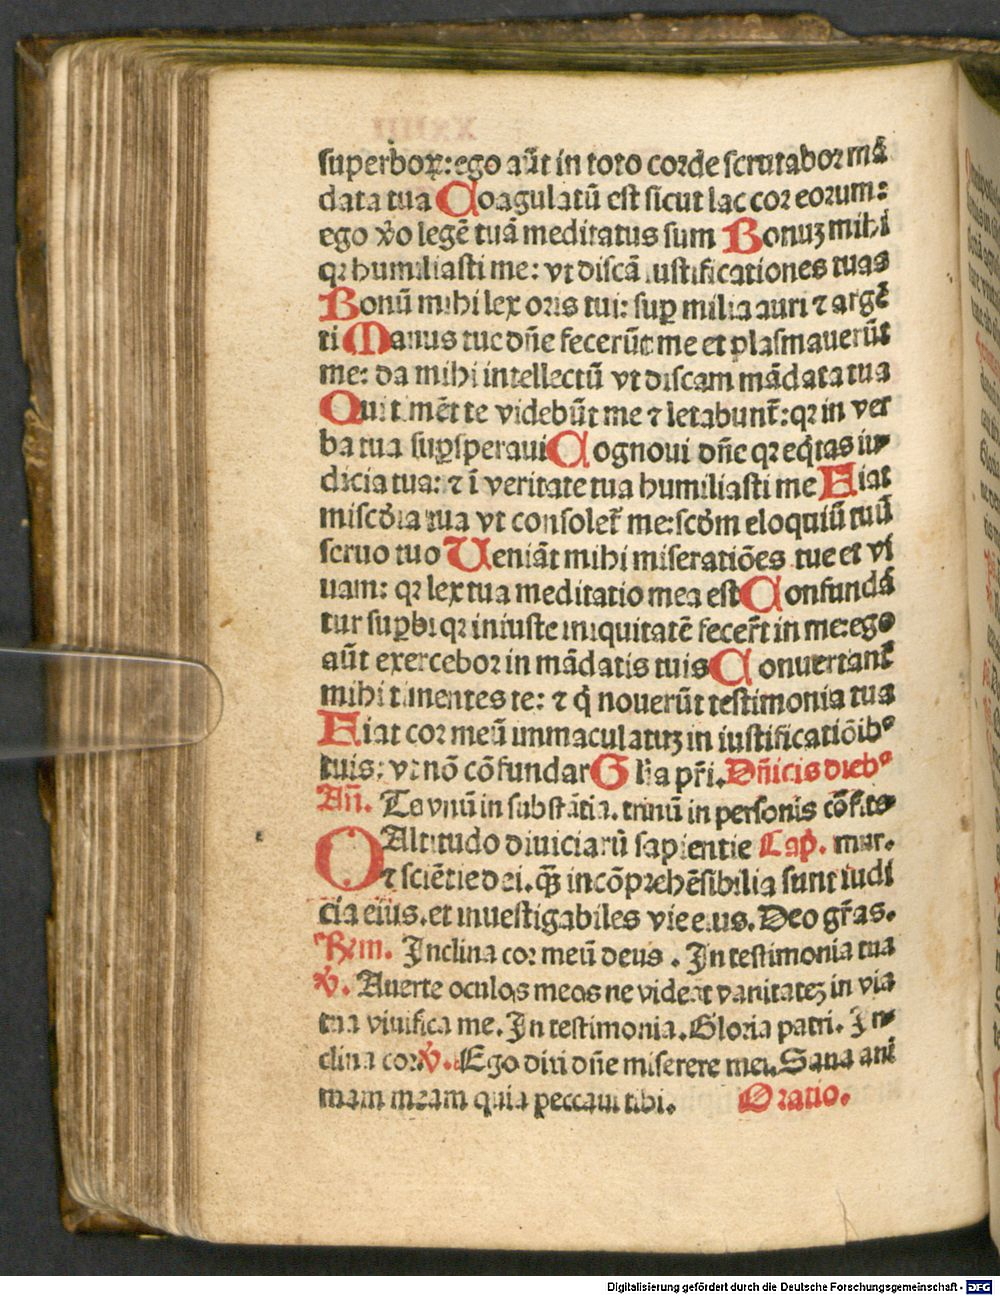 superboꝝ: ego aūt in toto corde scrutabor mā
data tua Coagulatū est sicut lac cor eorum:
ego v̄o legē tuā meditatus sum Bonuʒ mihi
qꝛ humiliasti me: vt discā iustificationes tuas
Bonū mihi lex oris tui: suꝑ milia auri ⁊ argē
ti Manus tue dn̄e fecerūt me et plasmauerūt
me: da mihi intellectū vt discam mādata tua
Qui timēt te videbūt me ⁊ letabunt̄: qꝛ in ver
ba tua suꝑsperaui Cognoui dn̄e qꝛ eq̇tas iu-
dicia tua: ⁊ ī veritate tua humiliasti me Fiat
miscḋia tua vt consolet̄ me: scḋm eloquiū tuū
seruo tuo Ueniāt mihi miseratiōes tue et vi
uam: qꝛ lex tua meditatio mea est Confundā
tur suꝑbi qꝛ iniuste iniquitatē fecer̄t in me: ego
aūt exercebor in mādatis tuis Conuertant̄
mihi timentes te: ⁊ q̇ nouerūt testimonia tua
Fiat cor meū immaculatuʒ in iustificatiōibꝰ
tuis: vt nō cōfundar Gl̄ia pr̄i. Dn̄icis diebꝰ
An̄. Te vnū in substātia. trinū in personis cōfite-
O Altitudo diuiciarū sapientie Cap̄. mur.
et sciētie dei. qꝫ̄ incōprehēsibilia sunt iudi
cia eius. et inuestigabiles vie eius. Deo gr̄as.
R̄m. Inclina cor meū deus. In testimonia tua
v̄. Auerte oculos meos ne videāt vanitateʒ in via
tua viuifica me. In testimonia. Gloria patri. In-
clina cor. v̄. Ego dixi dn̄e miserere mei. Sana ani
mam meam quia peccaui tibi. Oratio.
Digitalisierung gefördert durch die Deutsche Forschungsgemeinschaft - DFG